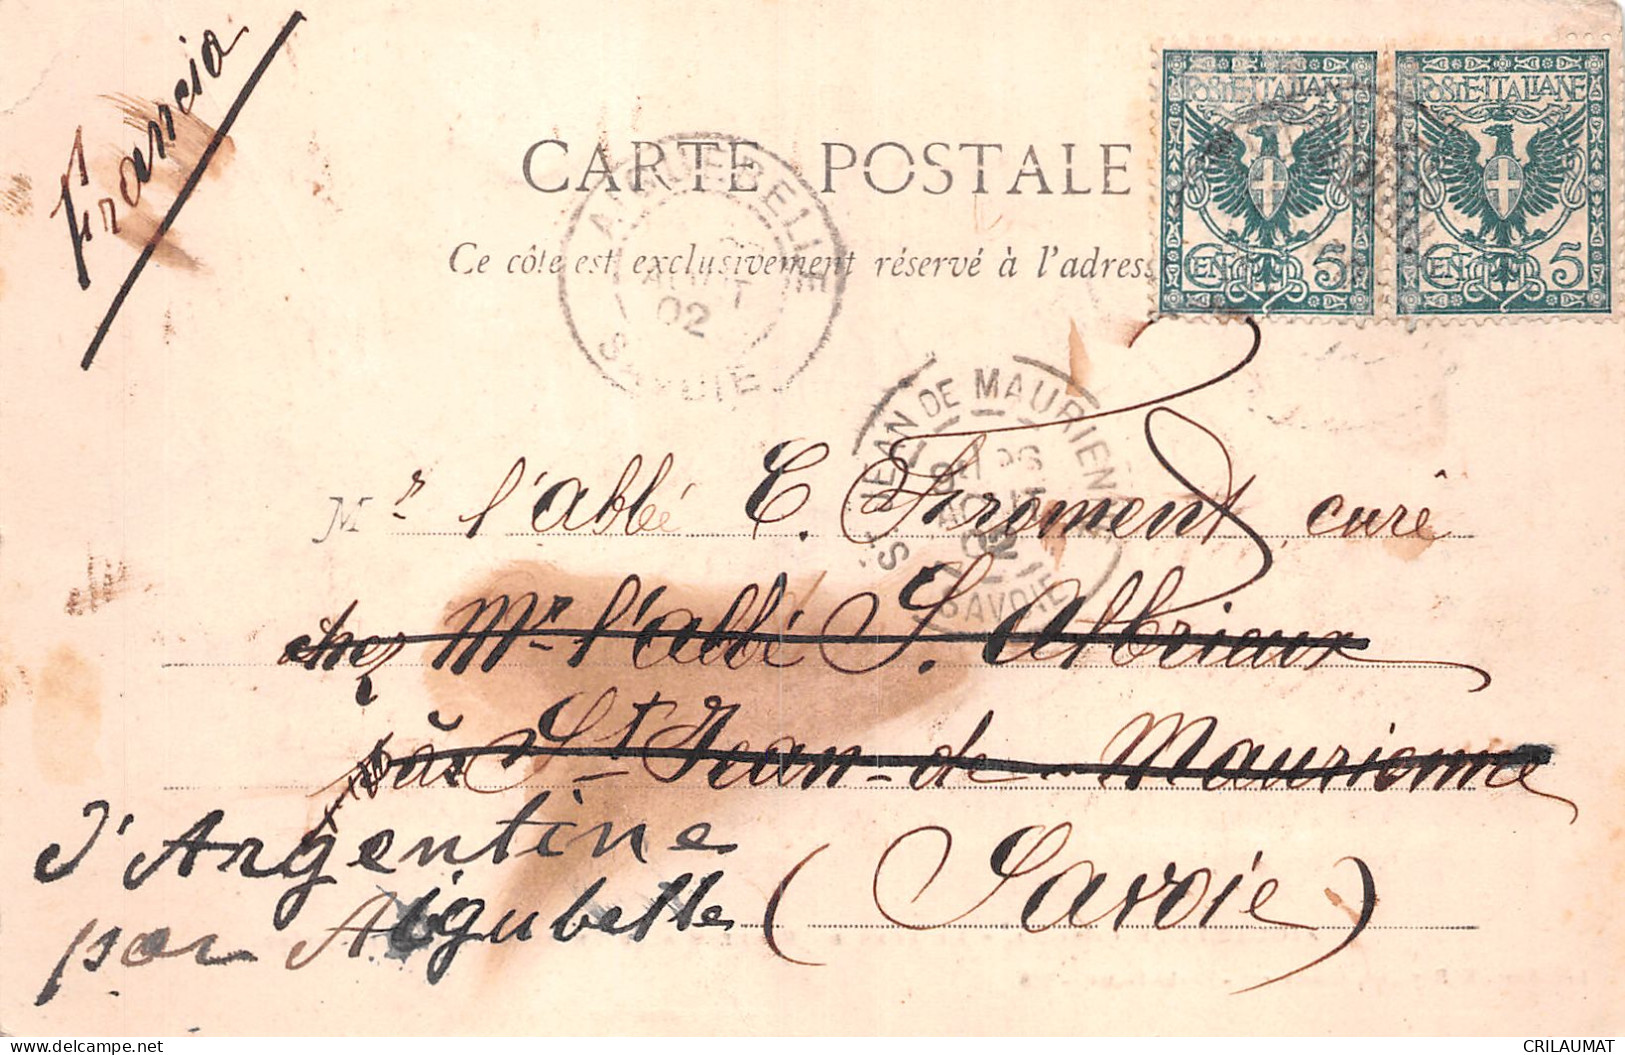 Francia
CARTE POSTALE
Ce côté est exclusivement réservé à l'adress
POSTE·ITALIANE
CEN 5
POSTE·ITALIANE
CEN 5
AIGUEBELLE
AOUT
02
SAVOIE
St JEAN DE MAURIENNE
8
AOUT
02
SAVOIE
Mr l'abbé E. Froment, curé
chez Mr l'abbé S. Albrieux
St Jean-de-Maurienne
d'Argentine
par Aigubelle (Savoie)
delcampe.net
CRILAUMAT